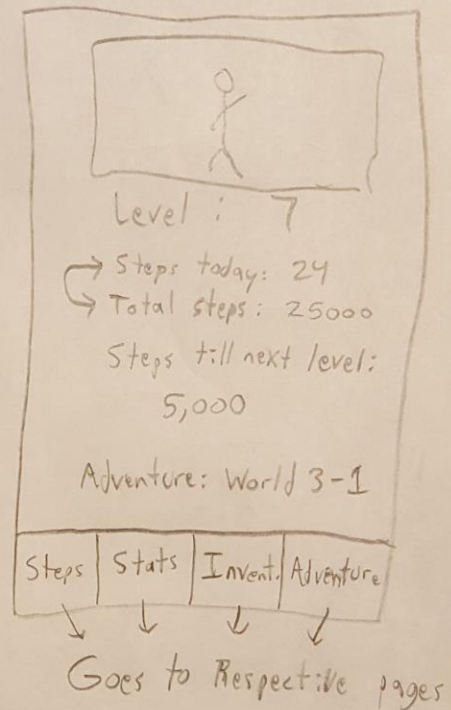 Level: 7
Steps today: 24
Total steps: 25000
Steps till next level:
5,000
Adventure: World 3-1
Steps Stats Invent. Adventure
Goes to Respective pages